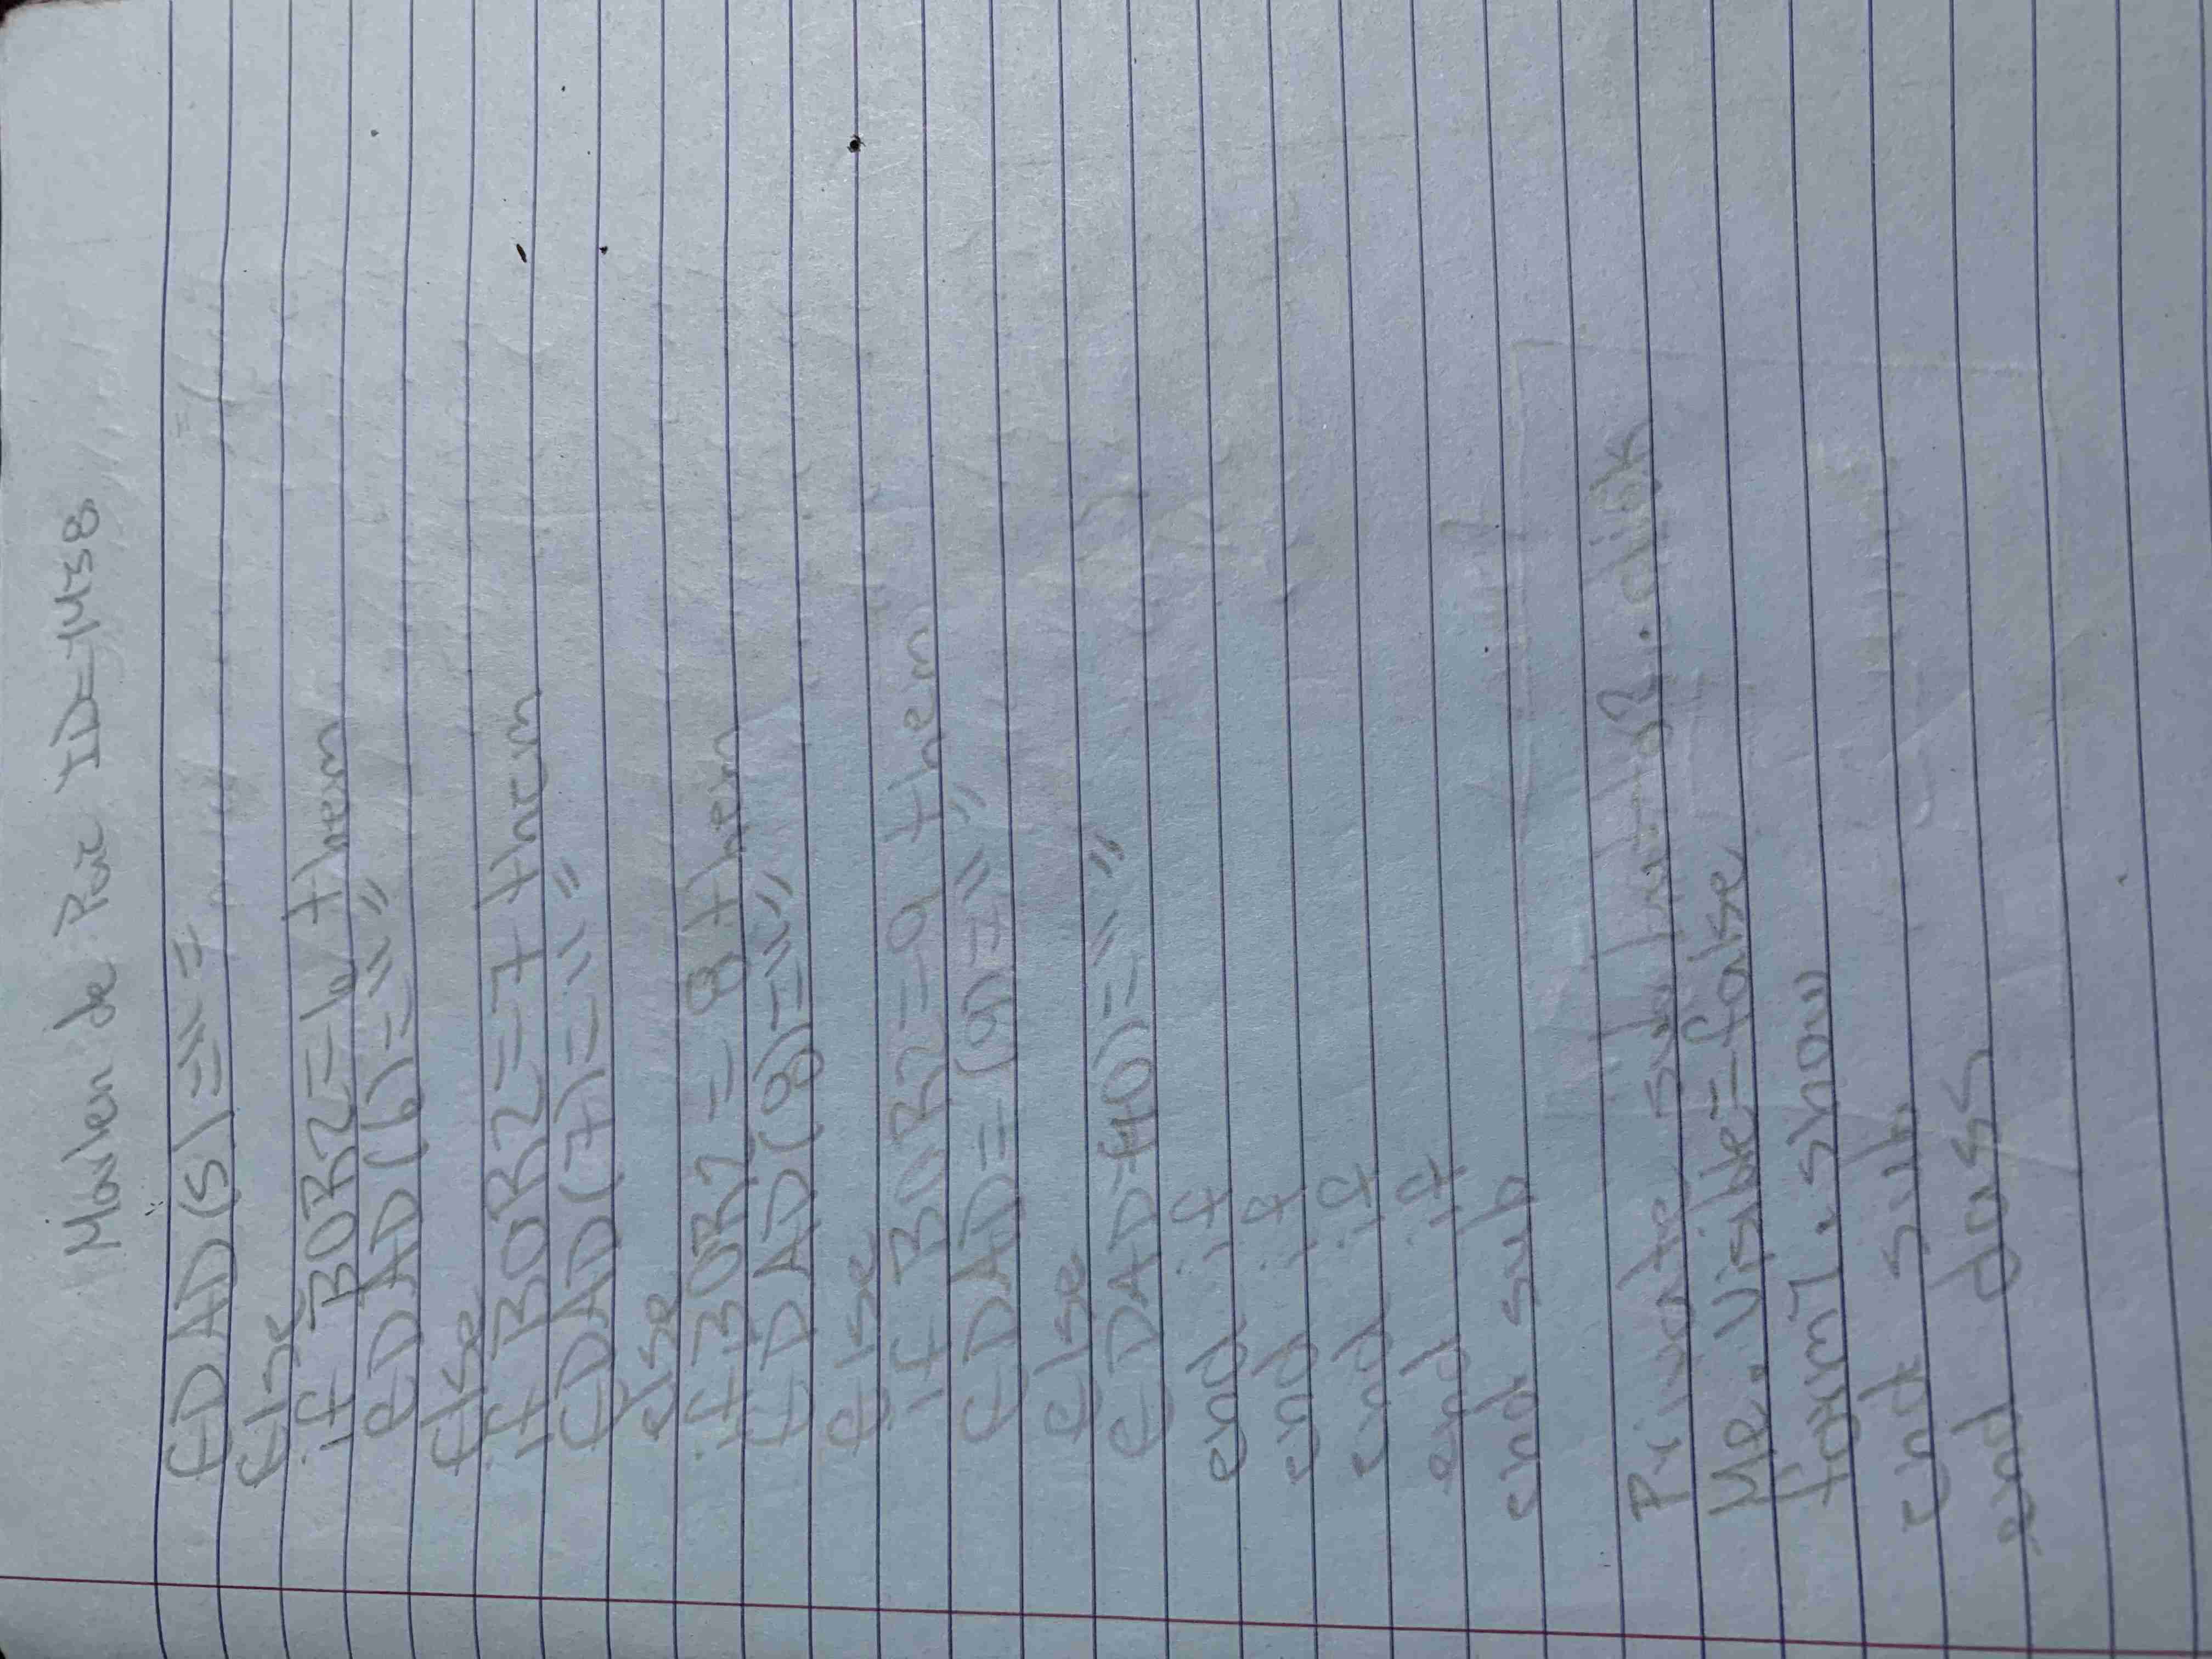 Maulen de Paz ID=1438
EDAD(5)=""=
Else
if BOR2=6 then
eDAD(6)=""
Else
if BOR2=7 then
EDAD(7)=""
else
if BOR2=8 then
EDAD(8)=""
else
if BOR2=9 then
EDAD=(9)=""
else
EDAD(10)=""
end if
end if
end if
end if
end sub
Private sub
Me.Visible=false
form7.show
end sub
end class